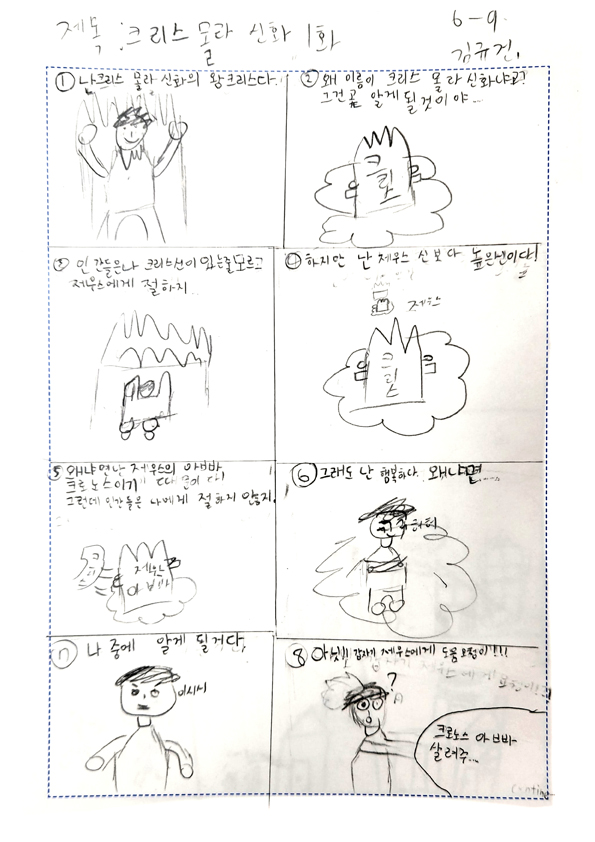 제목 : 크리스 몰라 신화 1화
6-9
김규건.
① 난크리스 몰라 신화의 왕크리스다.
② 왜 이름이 크리스 몰라 신화냐고?
그건 곧 알게 될것이야...
크리스
③ 인간들은 나 크리스신이 있는줄 모르고
제우스에게 절하지...
④ 하지만 난 제우스 신보다 높은신이다!
제우스
크리스
5 왜냐면 난 제우스의 아빠빠
크로노스이기 때문이다!
그런데 인간들은 나에게 절하지 안치.
제우스
아빠빠
⑥ 그래도 난 행복하다. 왜냐면.....
⑦ 나중에 알게 될거다.
이시시
⑧ 아닛!! 갑자기 제우스에게 도움 요청이!!!!
?
크로노스 아빠빠
살려주...